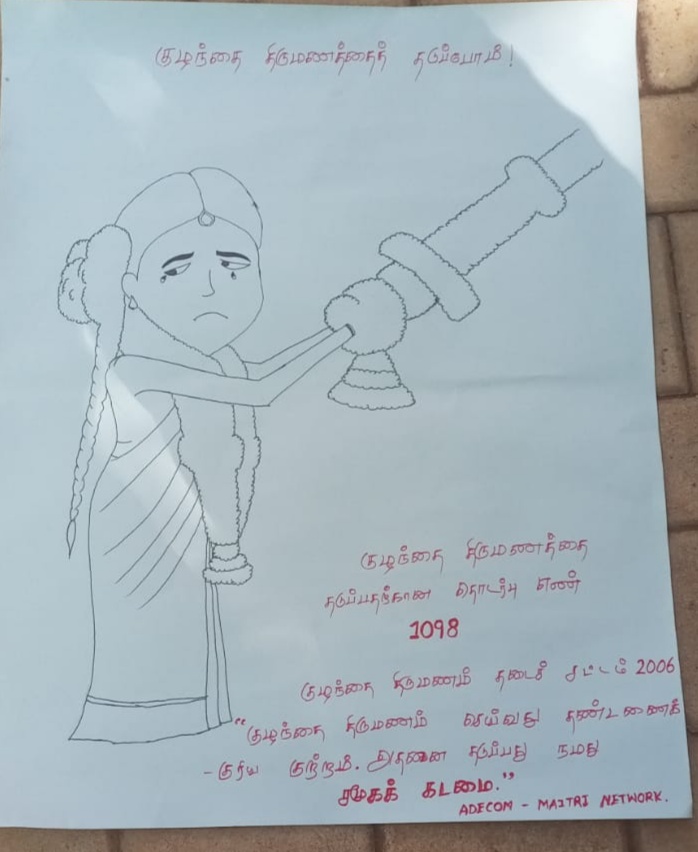 குழந்தை திருமணத்தைத் தடுப்போம்!
குழந்தை திருமணத்தை
தடுப்பதற்கான தொடர்பு எண்
1098
குழந்தை திருமணம் தடைச் சட்டம் 2006
"குழந்தை திருமணம் செய்வது தண்டனைக்
-குரிய குற்றம். அதனை தடுப்பது நமது
சமூகக் கடமை."
ADECOM - MAITRI NETWORK.